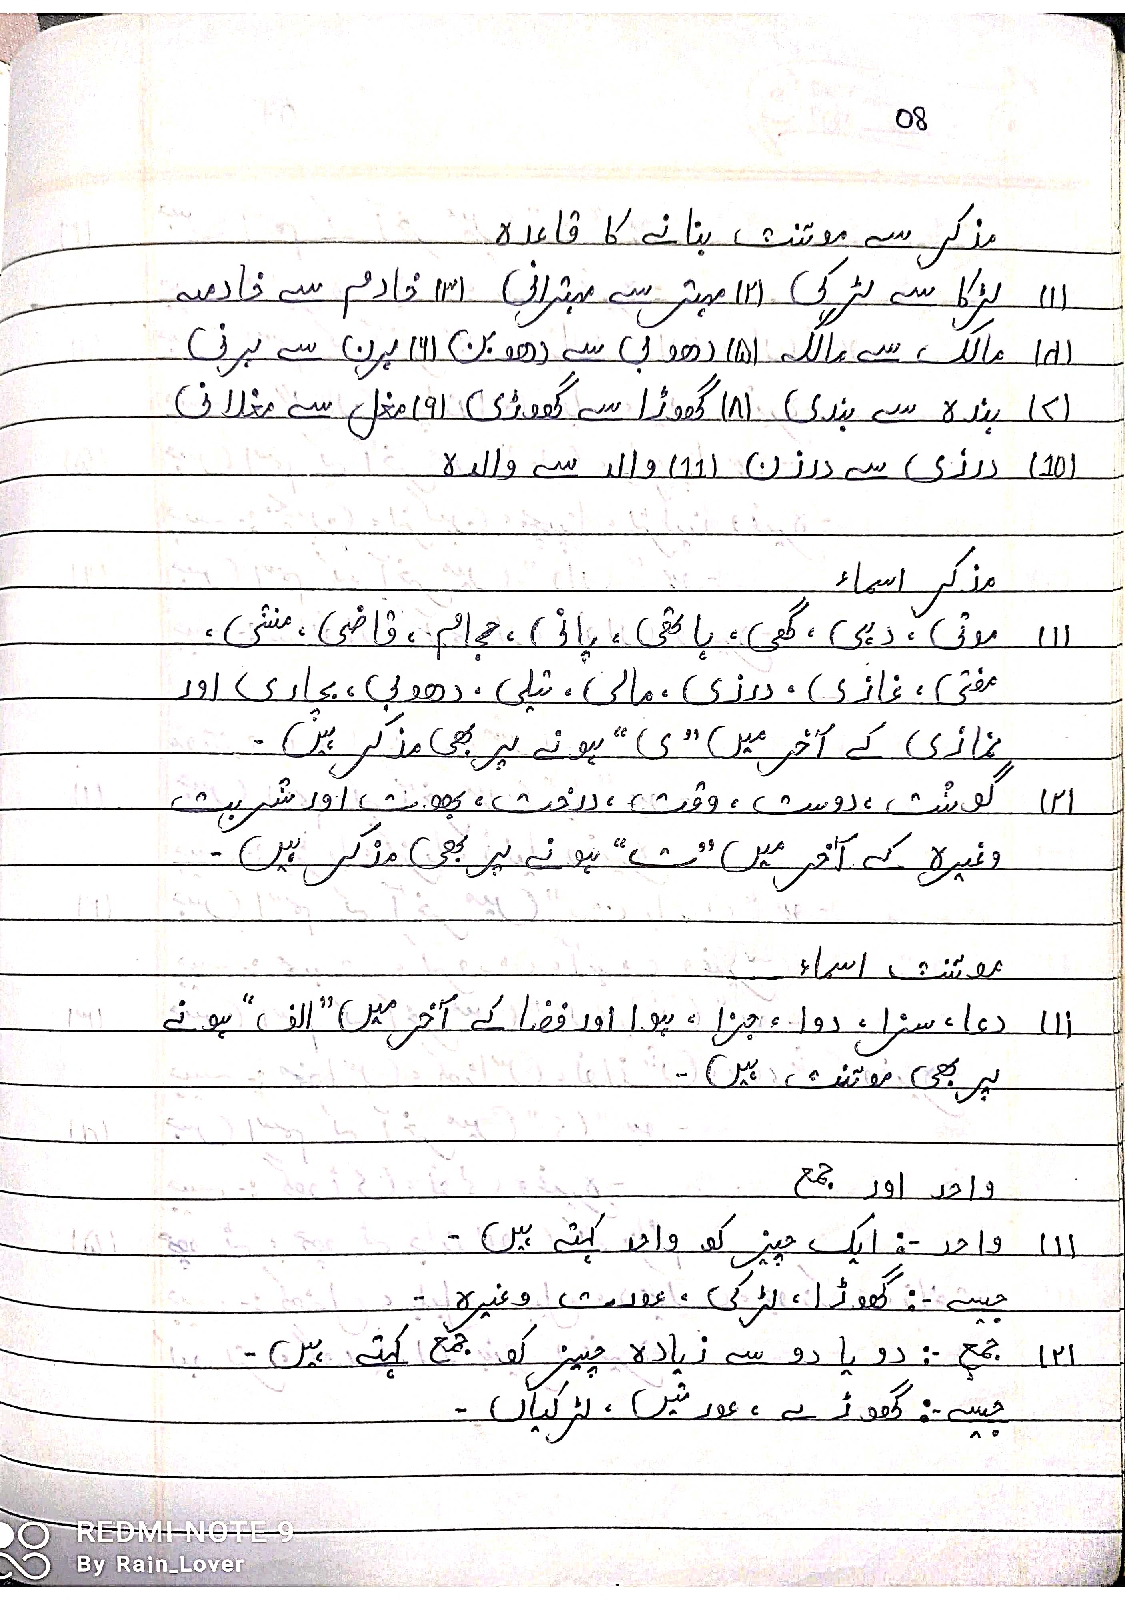 08
مذکر سے مؤنث بنانے کا قاعدہ
(۱) لڑکا سے لڑکی (۲) مہتر سے مہترانی (۳) خادم سے خادمہ
(۴) مالک سے مالکہ (۵) دھوبی سے دھوبن (۶) ہرن سے ہرنی
(۷) بندہ سے بندی (۸) گھوڑا سے گھوڑی (۹) مغل سے مغلانی
(10) درزی سے درزن (11) والد سے والدہ
مذکر اسماء
(۱) موتی، دہی، گھی، ہاتھی، پانی، حجام، قاضی، منشی،
مفتی، غازی، درزی، مالی، تیلی، دھوبی، پجاری اور
نمازی کے آخر میں "ی" ہونے پر بھی مذکر ہیں -
(۲) گوشت، دوست، وقت، درخت، بھوت اور شربت
وغیرہ کے آخر میں "ت" ہونے پر بھی مذکر ہیں -
مؤنث اسماء
(۱) دعا، سزا، دوا، جزا، ہوا اور فضا کے آخر میں "الف" ہونے
پر بھی مؤنث ہیں -
واحد اور جمع
(۱) واحد -: ایک چیز کو واحد کہتے ہیں -
جیسے -: گھوڑا، لڑکی، عورت وغیرہ -
(۲) جمع -: دو یا دو سے زیادہ چیز کو جمع کہتے ہیں -
جیسے -: گھوڑے، عورتیں، لڑکیاں -
REDMI NOTE 9
By Rain_Lover